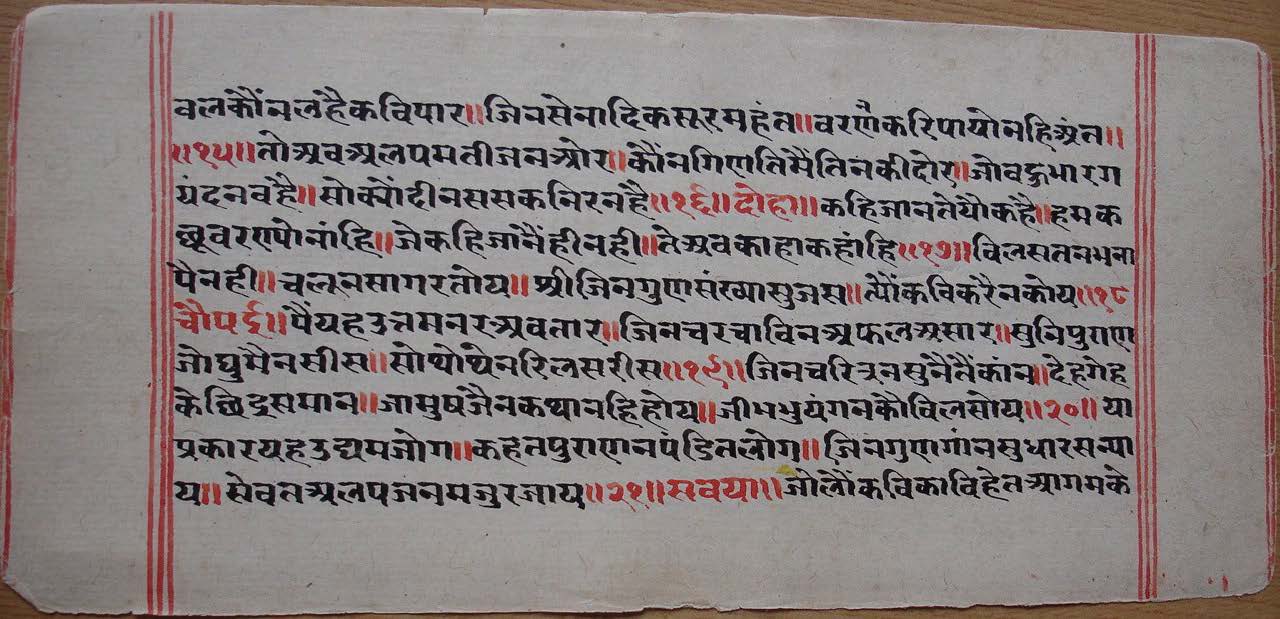 वलकौंनलहैकविपार॥जिनसेनादिकसूरमहंत॥वरणैकरिपायोनहिअंत॥
॥१५॥तोअवअलपमतीजनओर॥कौंनगिणतिमैंतिनकीदोर॥जोवहुभारग
यंदनवहै॥सोक्योंदीनससकनिरवहै॥१६॥दोहा॥कहिजानतेयौकहै॥हमक
छूवरणपोनांहि॥जेकहिजानैंहीनही॥तेअवकाहाकहांहि॥१७॥विलसतनभना
पैनही॥चलूनसागरतोय॥श्रीजिनगुणसंख्यासुजस॥त्यौंकविकरैनकोय॥१८
चौपई॥पैंयहउत्तमनरअवतार॥जिनचरचाविनअफलअसार॥सुनिपुराण
जोघुमैनसीस॥सोथोथेनरिलसरीस॥१९॥जिनचरित्रनसुनैतैंकांन॥देहगेह
केछिद्रसमान॥जामुषजैनकथानहिहोय॥जीभभुयंगनकौविलसोय॥२०॥या
प्रकारयहउद्यमजोग॥कहतपुराणनपंडितलोग॥जिनगुणगांनसुधारसन्या
य॥सेवतअलपजनमजुरजाय॥२१॥सवया॥जौलौंकविकाविहेतआगमके